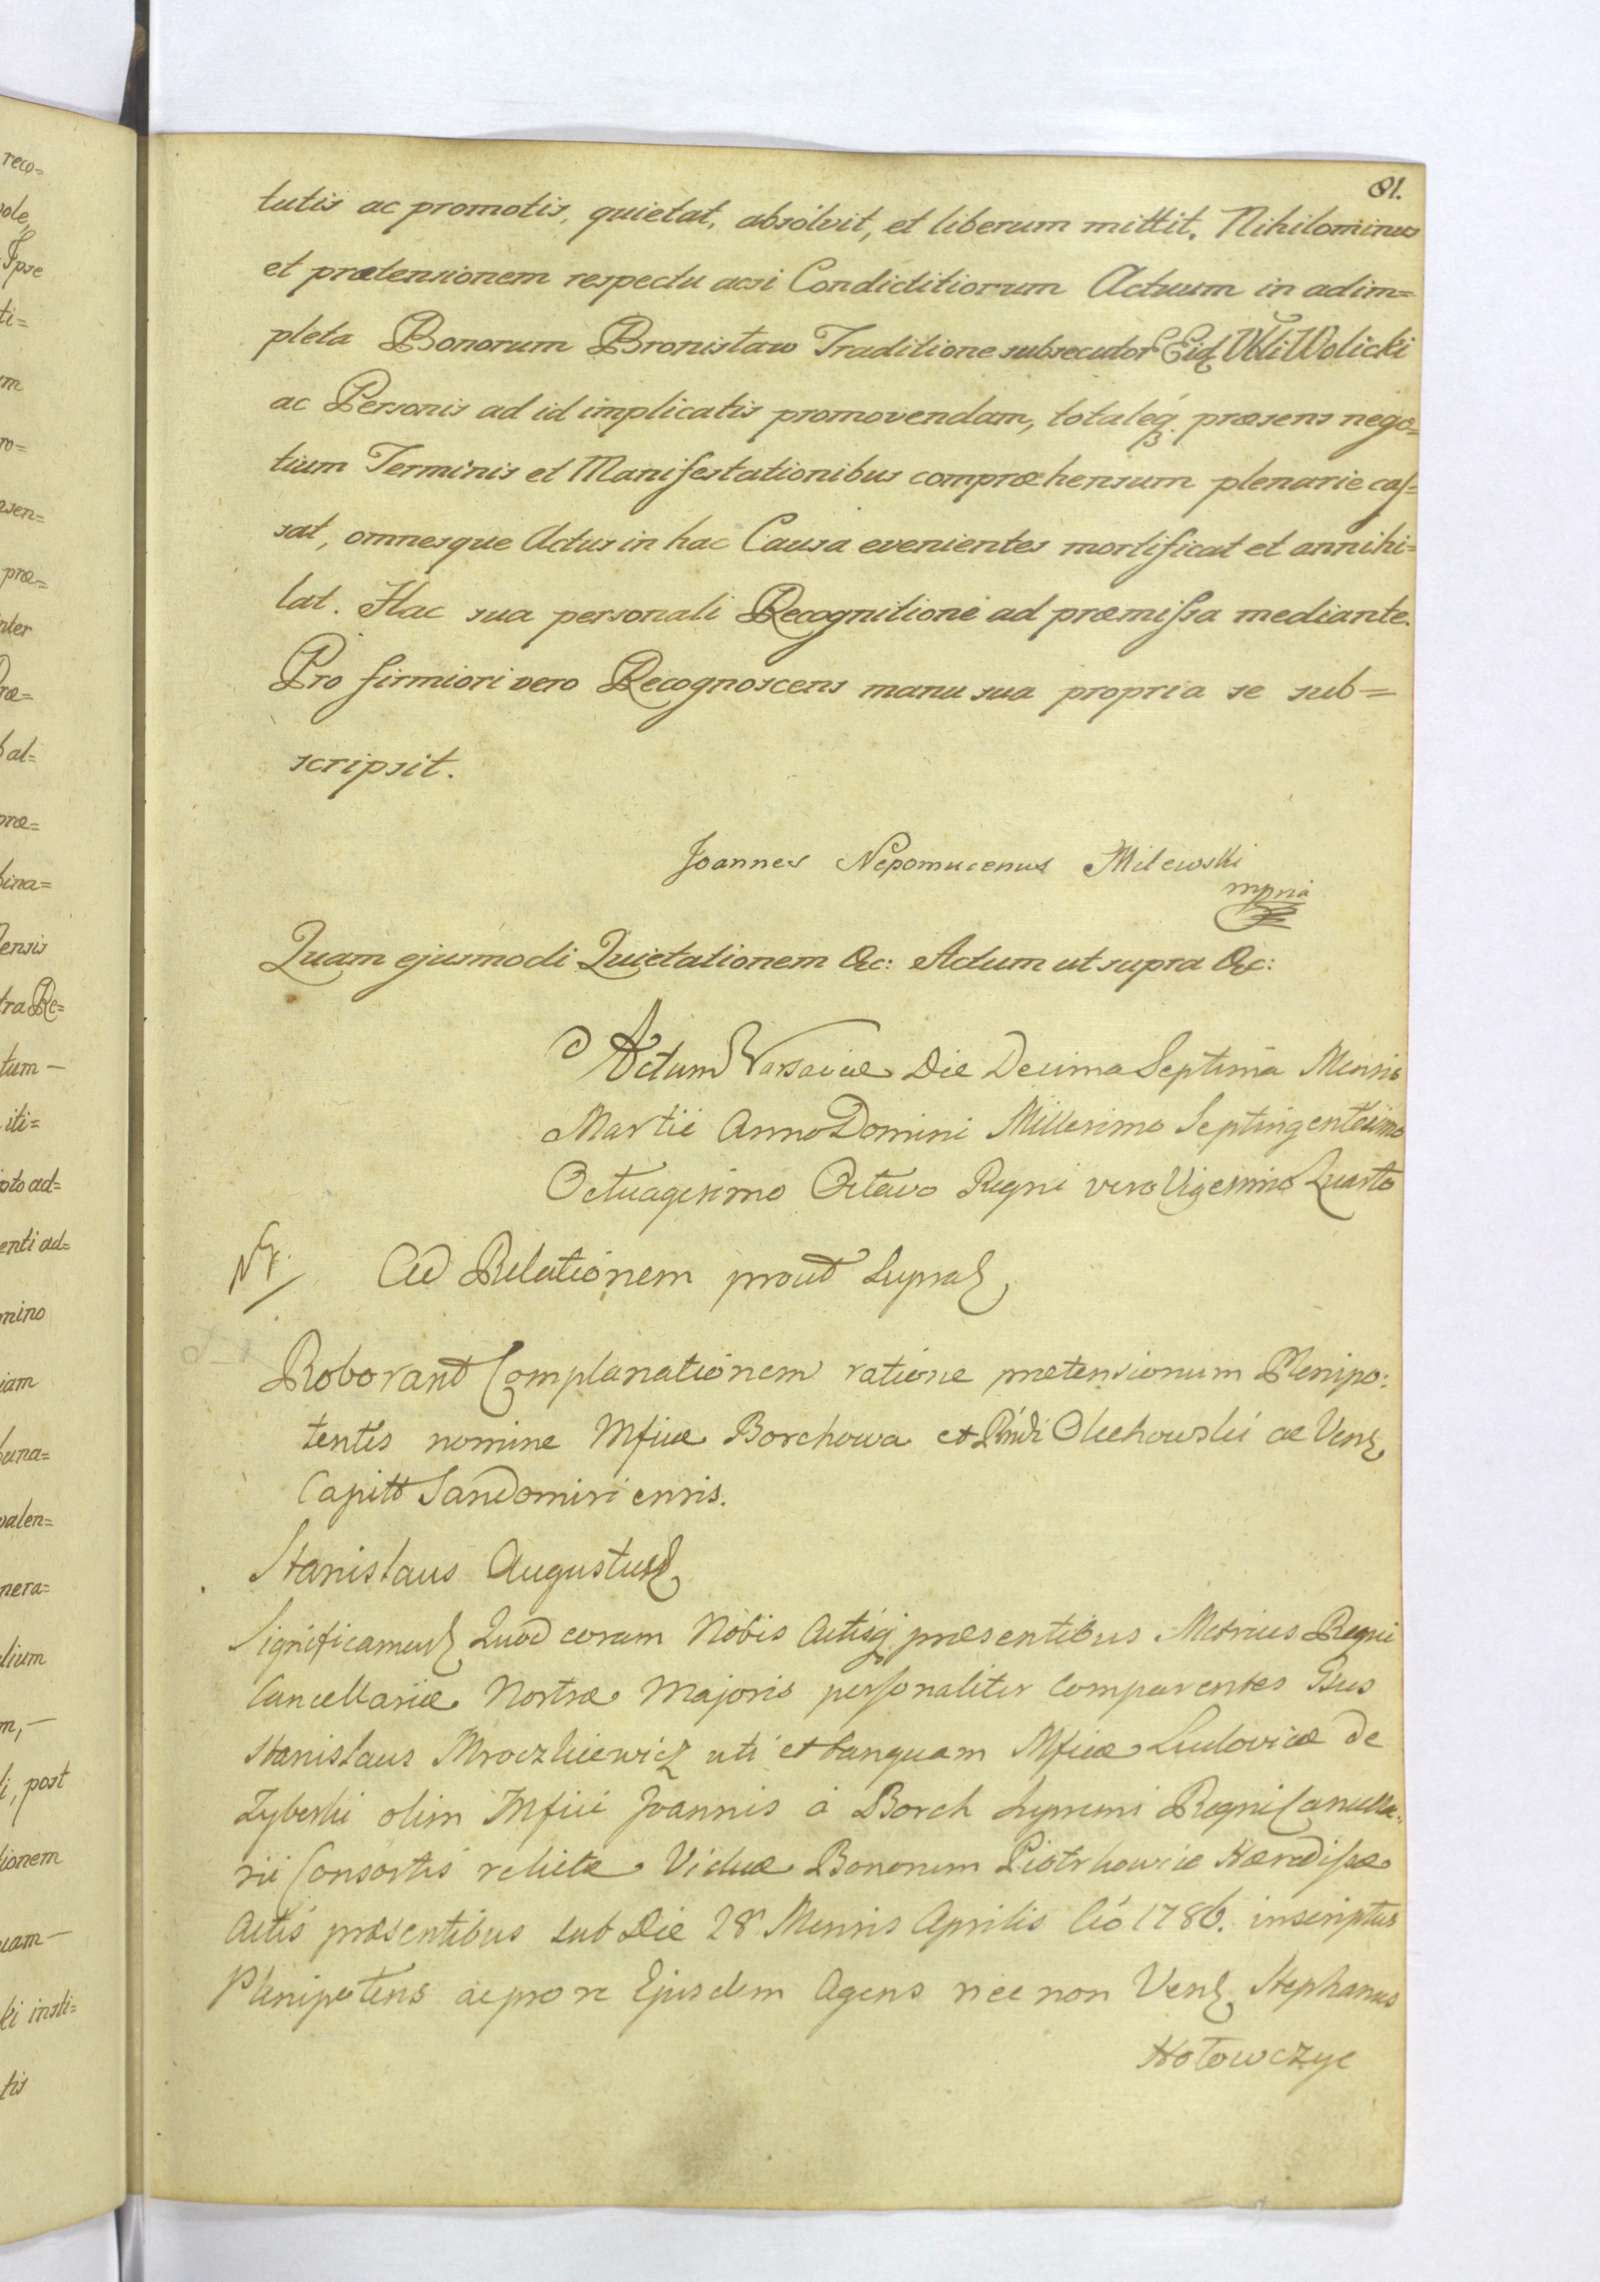 81.
tutis ac promotis, quietat, absolvit, et liberum mittit. Nihilominus
et prætensionem respectu acsi Condictitiorum Actuum in adim=
pleta Bonorum Bronisław Traditione subsecutor Eid Wolicki
ac Personis ad id implicatis promovendam, totaleq. præsens nego=
tium Terminis et Manifestationibus compræhensum plenarie cas=
sat, omnesque Actus in hac Causa evenientes mortificat et annihi=
lat. Hac sua personali Recognitione ad præmissa mediante.
Pro firmiori vero Recognoscens manu sua propria se sub=
scripsit.
Joannes Nepomucenus Milewski
mpria
Quam ejusmodi Quietationem &c: Actum ut supra &c:
Actum Varsaviæ Die Decima Septima Mensis
Martii Anno Domini Millesimo Septingentesimo
Octuagesimo Octavo Regni vero Vigesimo Quarto
Ad Relationem prout Supra
Roborant Complanationem ratione prætensionum Plenipo:
tentes nomine Mficæ Borchowa et Olechowski ac Ven
Capitt Sandomiriensis.
Stanislaus Augustus
Significamus Quod coram Nobis Actisq præsentibus Metrices Regni
Cancellariæ Nostræ Majoris personaliter comparentes Gsus
Stanislaus Mroczkiewicz uti et tanquam Mficæ Ludovicæ de
Zyberki olim Mfici Joannis a Borch Supremi Regni Cancella:
rii Consortis relictæ Viduæ Bonorum Piotrkowice Hæredissæ
Actis præsentibus sub Die 28 Mensis Aprilis Ao 1786. inscriptus
Plenipotens ac pro re Ejusdem Agens nec non Ven Stephanus
Hołowczyc
reco=
Ipse
ti=
m
ro=
præ=
inter
al=
ensis
tra Re=
tum —
iti=
enti ad=
iam
valen=
nera=
m, —
i, post
tionem
uam —
ki insti=
tis